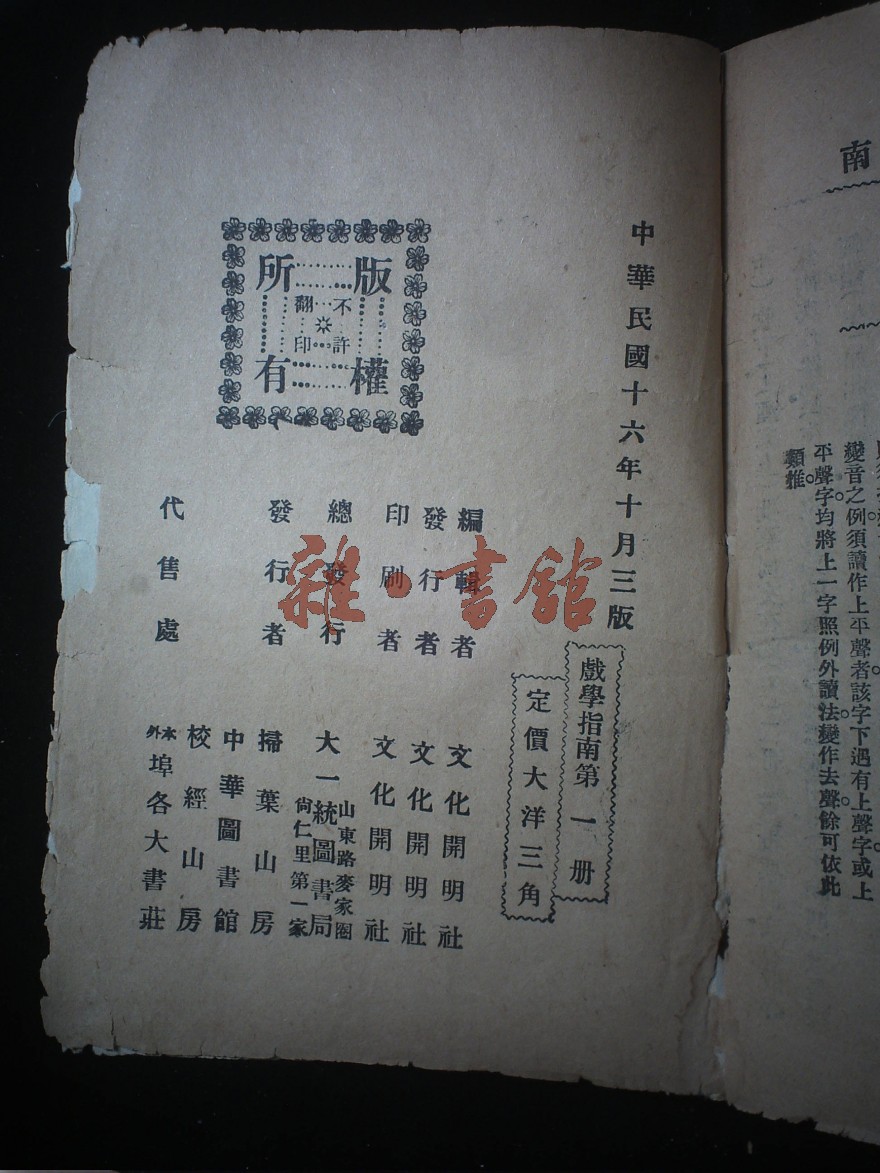 南
變音之例須讀作上平聲者該字下遇有上聲字或上
平聲字均將上一字照例外讀法變作去聲餘可依此
類推
中華民國十六年十月三版
戲學指南第一册
定價大洋三角
編輯者 文化開明社
發行者 文化開明社
印刷者 文化開明社
總發行 大一統圖書局 山東路麥家圈 尚仁里第一家
發行者 掃葉山房
中華圖書館
代售處 校經山房
本外埠各大書莊
版權所有
不許翻印
雜·書館